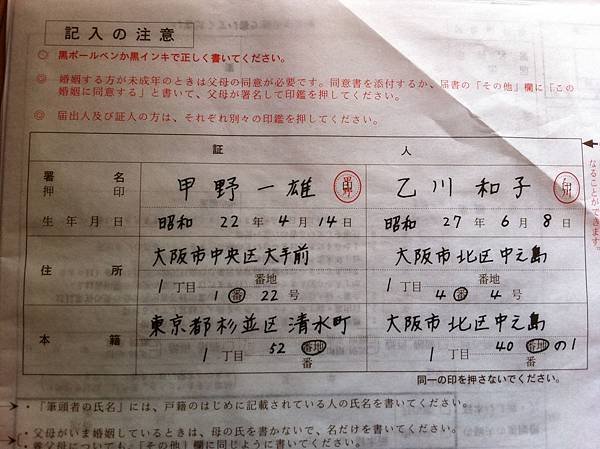 記入の注意
◎ 黒ボールペンか黒インキで正しく書いてください。
◎ 婚姻する方が未成年のときは父母の同意が必要です。同意書を添付するか、届書の「その他」欄に「この
婚姻に同意する」と書いて、父母が署名して印鑑を押してください。
◎ 届出人及び証人の方は、それぞれ別々の印鑑を押してください。
証 人
署名
押印
甲野一雄 乙川和子
生年月日 昭和 22年 4月 14日 昭和 27年 6月 8日
住所
大阪市中央区大手前 大阪市北区中之島
1丁目 1 番地 番 22号 4 番地 番 4号
本籍
東京都杉並区清水町 大阪市北区中之島
1丁目 52 番地 番 1丁目 40 番地 番 の1
同一の印を押さないでください。
なることができます。
・「筆頭者の氏名」には、戸籍のはじめに記載されている人の氏名を書いてください。
・父母がいま婚姻しているときは、母の氏を書かないで、名だけを書いてください。
養父母についても、「その他」欄に同じように書いてください。